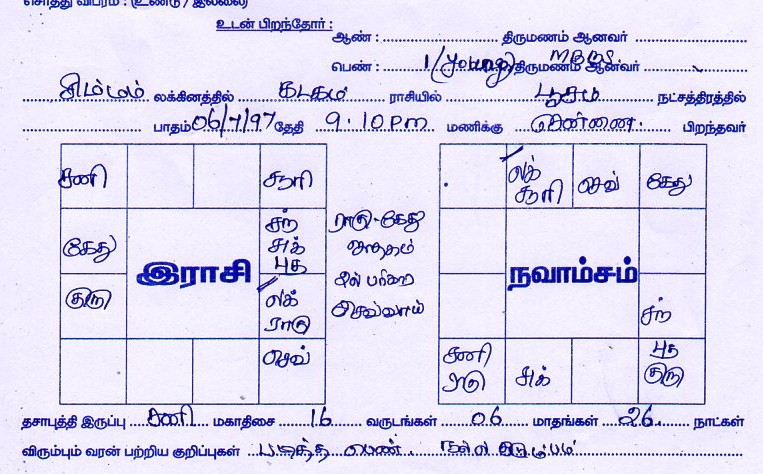 சொத்து விபரம் : (உண்டு / இல்லை)
உடன் பிறந்தோர் :
ஆண் : திருமணம் ஆனவர்
பெண் : 1 (Young) திருமணம் ஆனவர் MBBS
சிம்மம் லக்கினத்தில் கடகம் ராசியில் பூசம் நட்சத்திரத்தில்
பாதம் 06/7/97 தேதி 9.10 PM மணிக்கு சென்னை பிறந்தவர்
சனி சூரி
கேது சந் சுக் புத
இராசி
குரு லக் ராகு
செவ்
ராகு-கேது
ஜாதகம்
செவ்வாய்
லக் சூரி செவ் கேது
நவாம்சம்
சந்
சனி ராகு சுக் புத குரு
தசாபுத்தி இருப்பு சனி மகாதிசை 16 வருடங்கள் 06 மாதங்கள் 26 நாட்கள்
விரும்பும் வரன் பற்றிய குறிப்புகள் படித்த பெண். நல்ல குடும்பம்